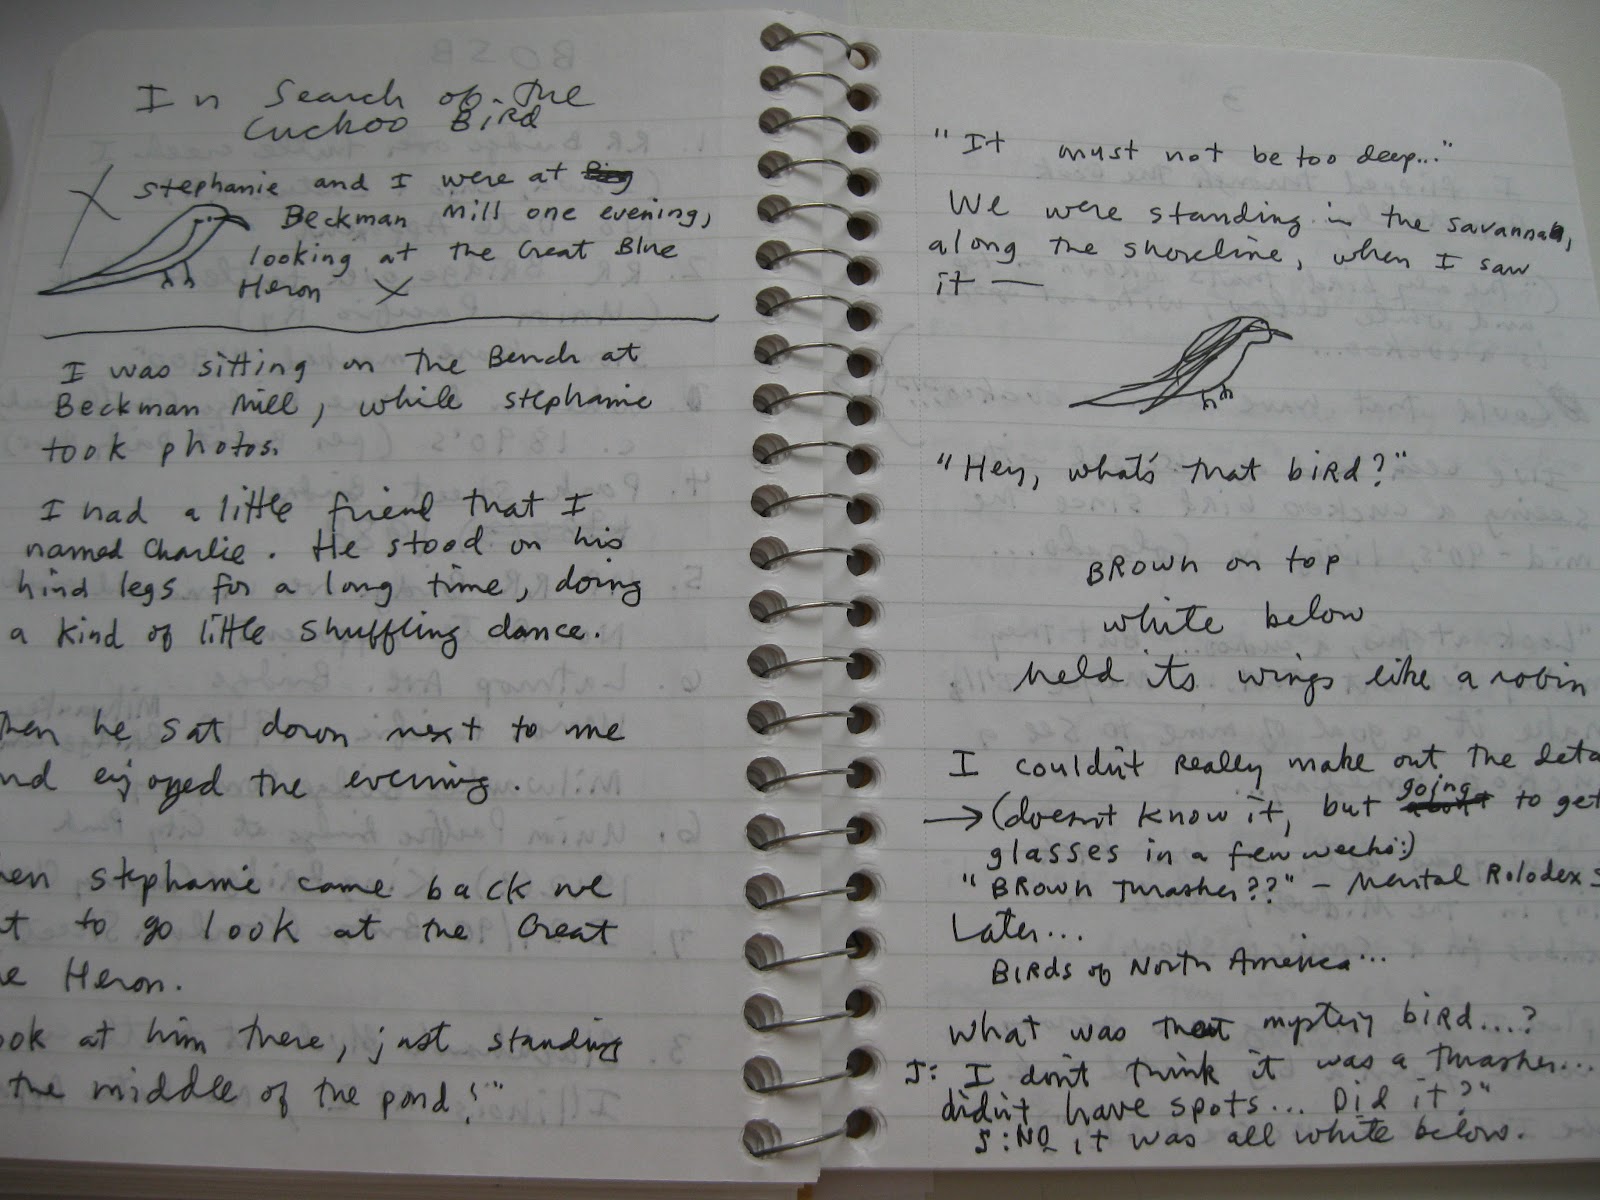 In Search of the
Cuckoo Bird
Stephanie and I were at Big
Beckman Mill one evening,
looking at the Great Blue
Heron X
I was sitting on the Bench at
Beckman Mill, while Stephanie
took photos.
I had a little friend that I
named Charlie. He stood on his
hind legs for a long time, doing
a kind of little shuffling dance.
hen he sat down next to me
nd enjoyed the evening.
en Stephanie came back we
t to go look at the Great
e Heron.
ook at him there, just standing
the middle of the pond!"
"It must not be too deep..."
We were standing in the savannah,
along the shoreline, when I saw
it —
"Hey, what's that bird?"
BROWN on top
white below
held its wings like a robin
I couldn't really make out the deta
→ (doesn't know it, but going to get
glasses in a few weeks:)
"BROWN Thrasher??" - Mental Rolodex S
Later...
BIRDS of North America...
What was that mystery bird...?
J: I don't think it was a thrasher...
didn't have spots... Did it?"
S: NO it was all white below.